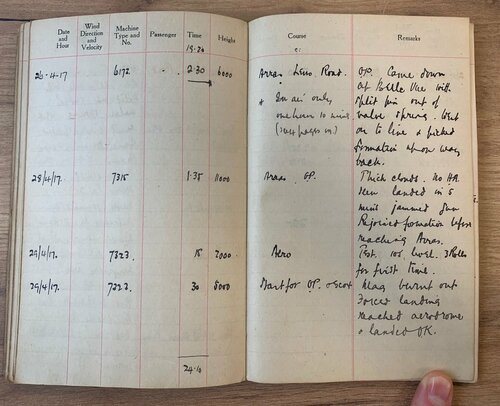 Date and Hour Wind Direction and Velocity Machine Type and No. Passenger Time Height Course Remarks
19.20
26.4.17 6172 2.30 6000 Arras Lens. Road. O.P. Came down
at Belle Vue with
* In air only split pin out of
one hour 10 mins valve spring. Went
on to line & picked
formation up on way
back.
28/4/17. 7315 1.35 11000 Arras O.P. Thick clouds. No HA
seen landed in 5
mins jammed gun
Rejoined formation before
reaching Arras.
29/4/17. 7323. 15 7000 Aero Test.
for first time.
29/4/17. 7223. 30 8000 Start for O.P. Mag burnt out
Forced landing
reached aerodrome
& landed OK.
24.10